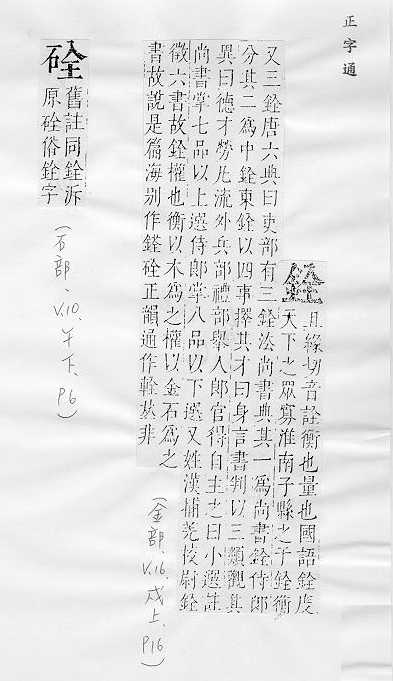 正字通
銓
且緣切音詮衡也量也國語銓度
天下之眾寡淮南子縣之乎銓衡
又三銓唐六典曰吏部有三銓法尚書典其一為尚書銓侍郎
分其二為中銓東銓以四事擇其才曰身言書判以三類觀其
異曰德才勞凡流外兵部禮部舉人郎官得自主之曰小選註
尚書掌七品以上選侍郎掌八品以下選又姓漢捕羗校尉銓
徵六書故銓權也衡以木為之權以金石為之
書故說是篇海別作硂正韻通作輇𠀤非
(金部、V.16、戌上、P.16)
硂
舊註同銓泝
原硂俗銓字
(石部、V.10、午下、P.6)